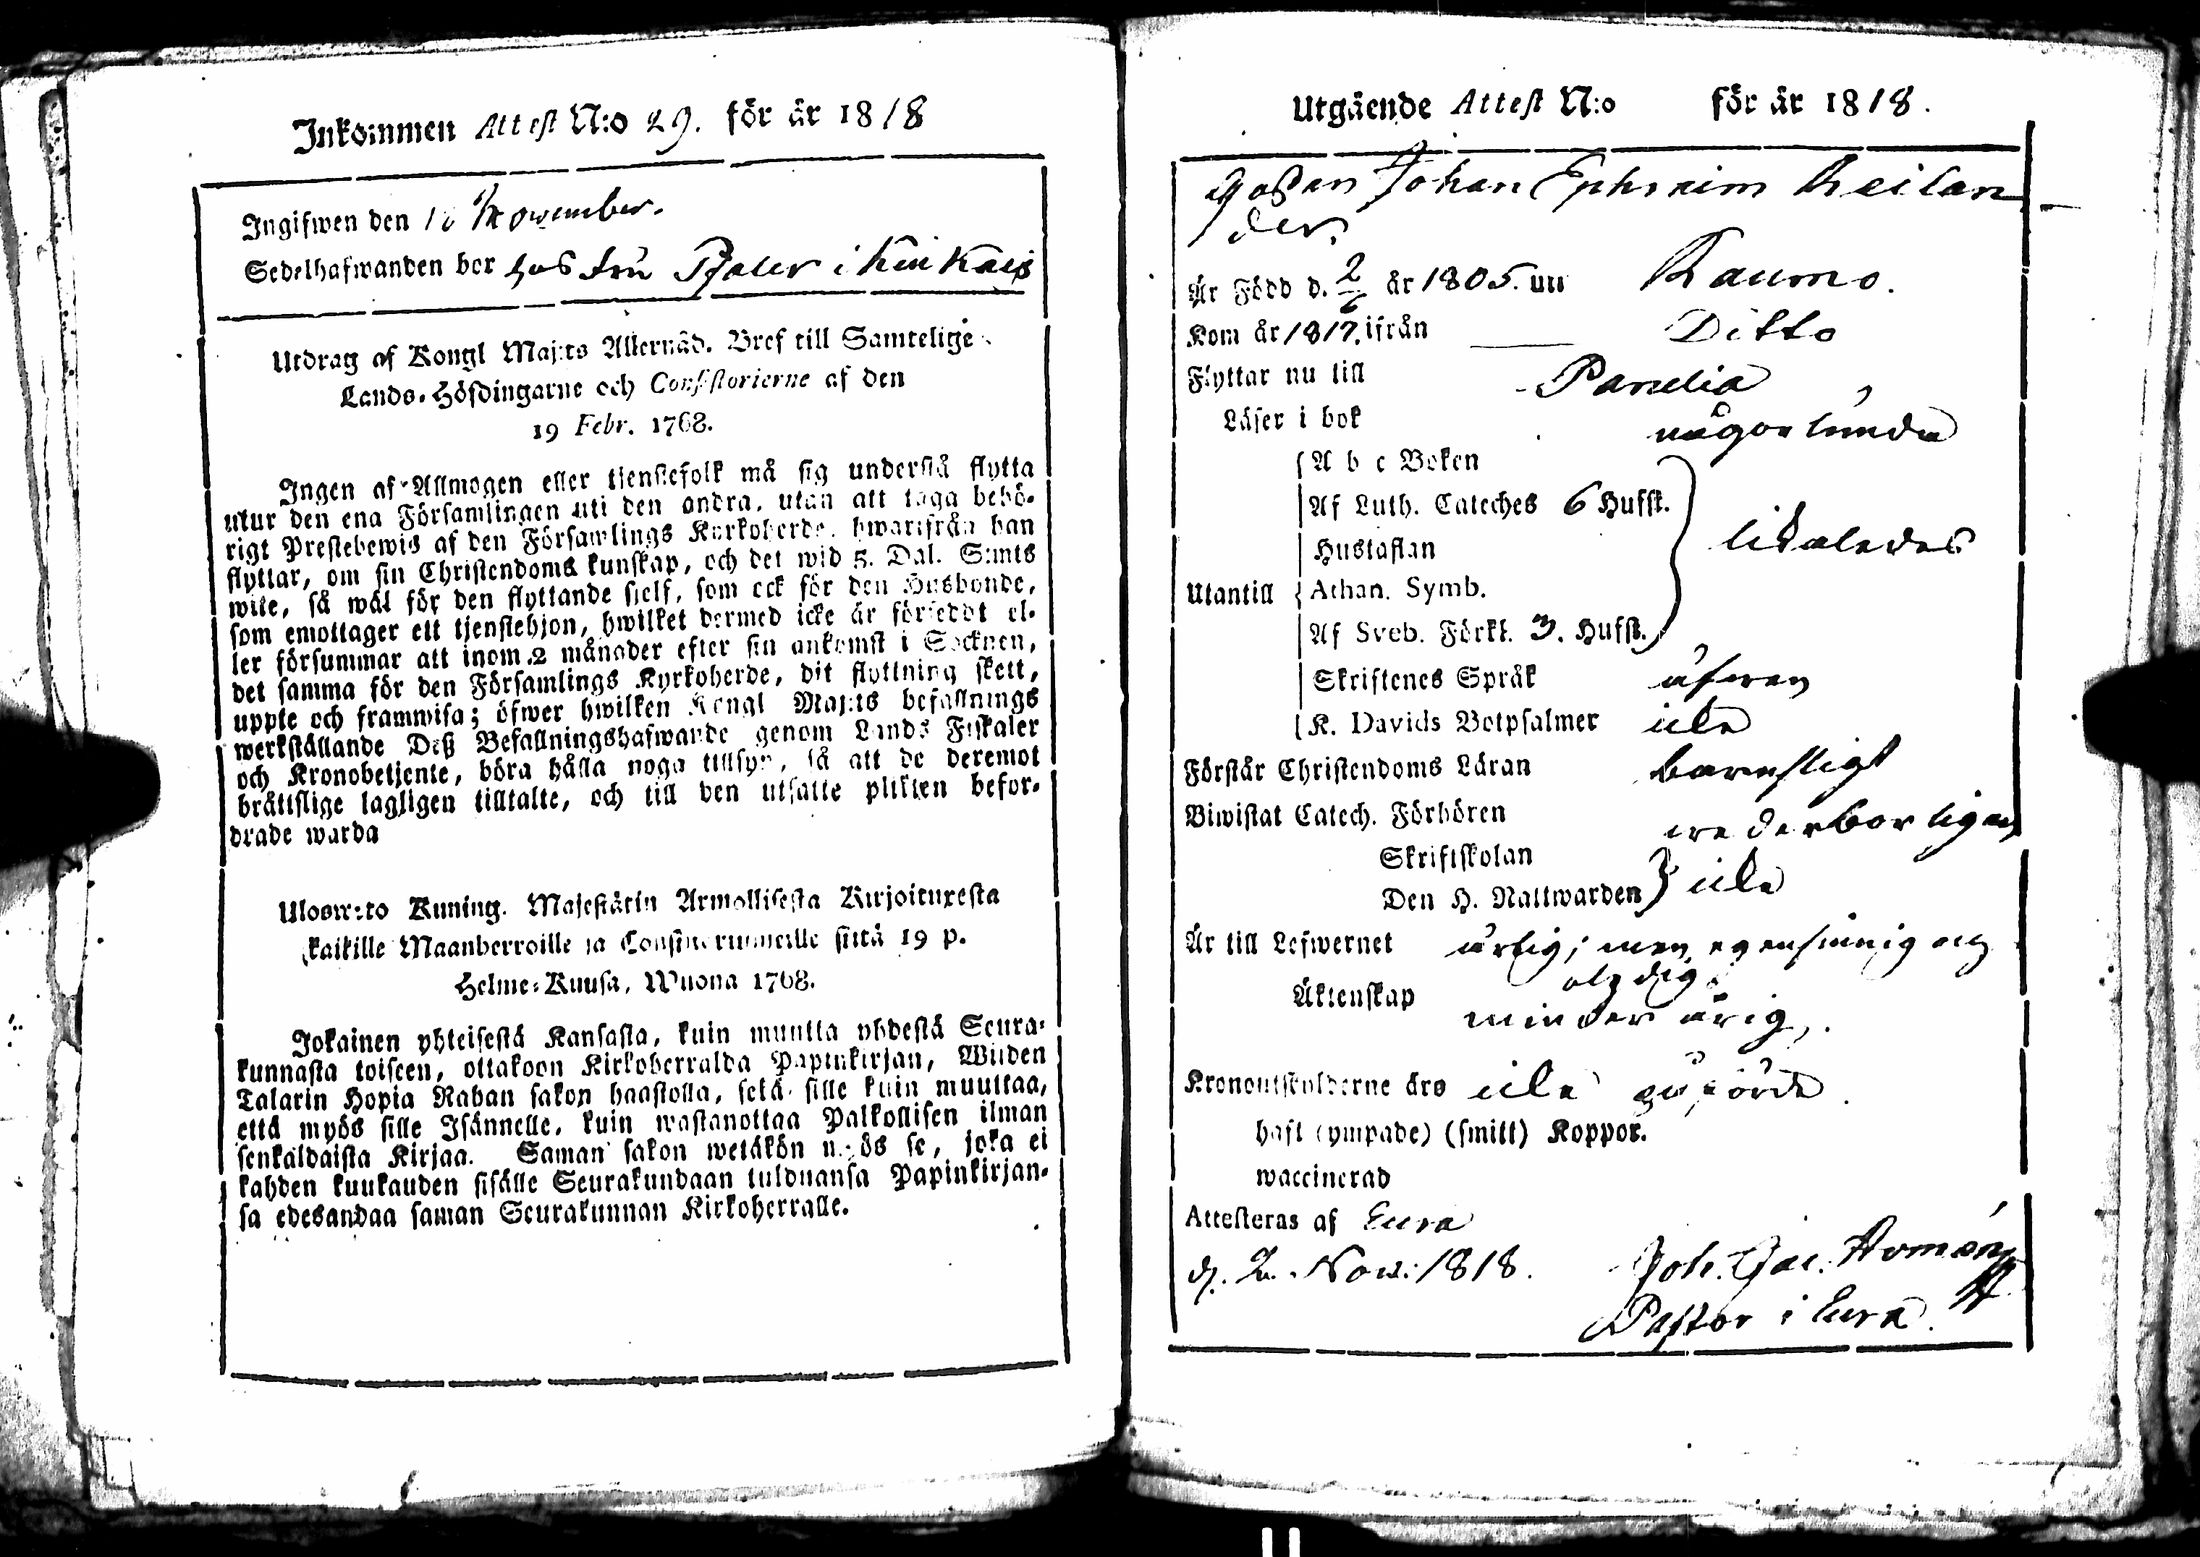 Inkommen Attest N:o 29. för år 1818
Ingifwen den 18 November.
Sedelhafwanden bor hos Fru Pfaler i Kiukais
Utdrag af Kongl Maj:ts Allernåd. Bref till Samtelige
Lands-Höfdingarne och Consistorierne af den
19 Febr. 1768.
Ingen af Allmogen eller tjenstefolk må sig understå flytta
utur den ena Församlingen uti den andra, utan att taga behö-
rigt Prestebewis af den Församlings Kyrkoherde, hwarifrån han
flyttar, om sin Christendoms kunskap, och det wid 5. Dal. S:mts
wite, så wäl för den flyttande sjelf, som ock för den Husbonde,
som emottager ett tjenstehjon, hwilket dermed icke är försedt el-
ler försummar att inom 2 månader efter sin ankomst i Socknen,
det samma för den Församlings Kyrkoherde, dit flyttning skett,
uppte och framwisa; öfwer hwilken Kongl Maj:ts befallnings
werkställande Deß Befallningshafwande genom Lands Fiskaler
och Kronobetjente, böra hålla noga tillsyn, så att de deremot
bråttslige lagligen tilltalte, och till den utsatte plikten befor-
drade warda
Ulosweto Kuning. Majestätin Armollisesta Kirjoituxesta
kaikille Maanherroille ja Consistoriumeille siitä 19 p.
Helme-Kuusa, Wuona 1768.
Jokainen yhteisestä Kansasta, kuin muutta yhdestä Seura-
kunnasta toiseen, ottakoon Kirkoherralda Papinkirjan, Wiiden
Talarin Hopia Rahan sakon haastolla, sekä sille kuin muuttaa,
että myös sille Isännelle, kuin wastanottaa Palkollisen ilman
senkaldaista Kirjaa. Saman sakon wetäkön myös se, joka ei
kahden kuukauden sisälle Seurakundaan tulduansa Papinkirjan-
sa edesandaa saman Seurakunnan Kirkoherralle.
Utgående Attest N:o för år 1818.
Gossen Johan Ephraim Keilan
der,
Är Född d. 2/6 år 1805. uti Raumo.
Kom år 1817. ifrån Ditto
Flyttar nu till Panelia
Läser i bok någorlunda
Utantill
A b c Boken
Af Luth. Cateches 6 Hufst.
Hustaflan
Athan. Symb.
Af Sveb. Förkl. 3. Hufst.
likaledes
Skriftenes Språk äfwen
K. Davids Botpsalmer icke
Förstår Christendoms Läran barnsligt
Biwistat Catech. Förhören wederborligen
Skriftskolan
Den H. Nattwarden icke
Är till Lefwernet ärlig; men egensinnig och
Äktenskap minderårig,
Kronoutskylderne äro icke påförde.
haft (ympade) (smitt) Koppor.
waccinerad
Attesteras af Eura
d. 2. Nov: 1818.
Joh. Jac. Armén
Pastor i Eura.